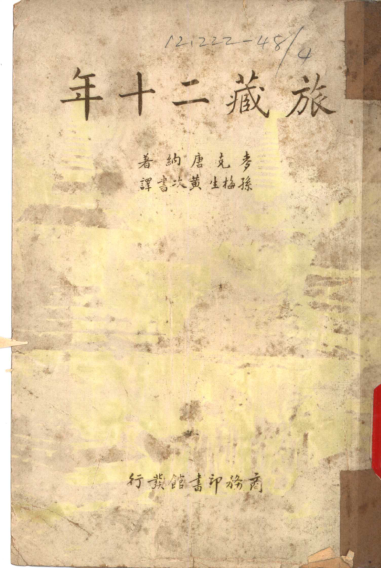 121222-48/4
旅藏二十年
麥克唐納著
孫梅生黃次書譯
商務印書館發行